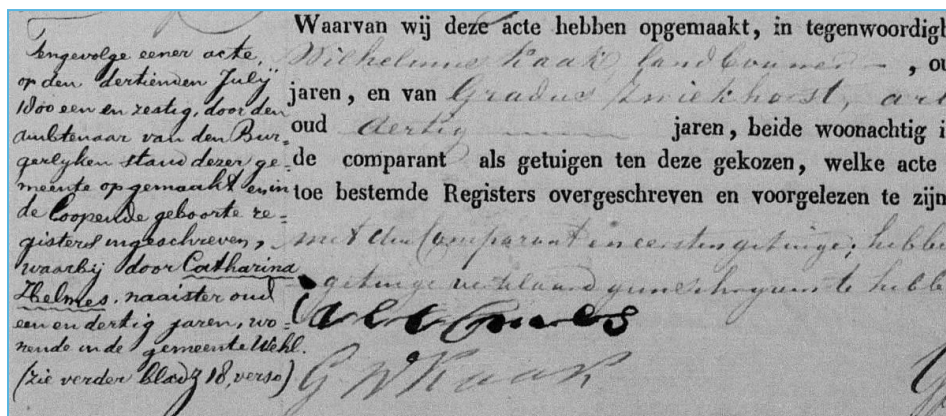 Tengevolge eener acte,
op den dertienden July
1800 een en zestig, door den
ambtenaar van den Bur=
gerlyken stand dezer ge=
meente opgemaakt en in
de loopende geboorte re=
gisters ingeschreven,
waarby door Catharina
Helmes, naaister oud
een en dertig jaren, wo=
nende in de gemeente Wehl.
(zie verder bladz 18, verso)
Waarvan wij deze acte hebben opgemaakt, in tegenwoordigh
Wilhelmus Kaak landbouwer , ou
jaren, en van Gradus Zwiekhorst, ar
oud dertig jaren, beide woonachtig i
de comparant als getuigen ten deze gekozen, welke acte
toe bestemde Registers overgeschreven en voorgelezen te zijn
met den Comparant en eersten getuige; hebbe
getuige verklaard geene schryven te hebbe
G W Kaak